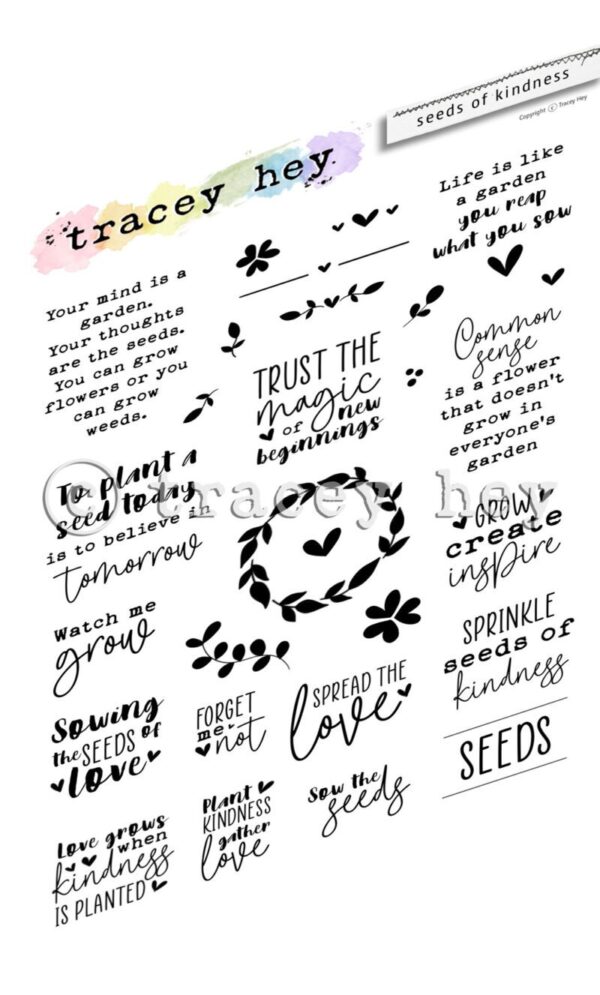 seeds of kindness
Copyright © Tracey Hey
tracey hey
Your mind is a
garden.
Your thoughts
are the seeds.
You can grow
flowers or you
can grow
weeds.
To plant a
seed today
is to believe in
tomorrow
Watch me
grow
Sowing
the SEEDS of
love
Love grows
when
kindness
IS PLANTED
TRUST THE
magic
of new
beginnings
FORGET
me not
SPREAD THE
love
Plant
KINDNESS
gather
love
Sow the
seeds
Life is like
a garden
you reap
what you sow
Common
sense
is a flower
that doesn't
grow in
everyone's
garden
GROW
create
inspire
SPRINKLE
seeds of
kindness
SEEDS
© tracey hey
© tracey hey